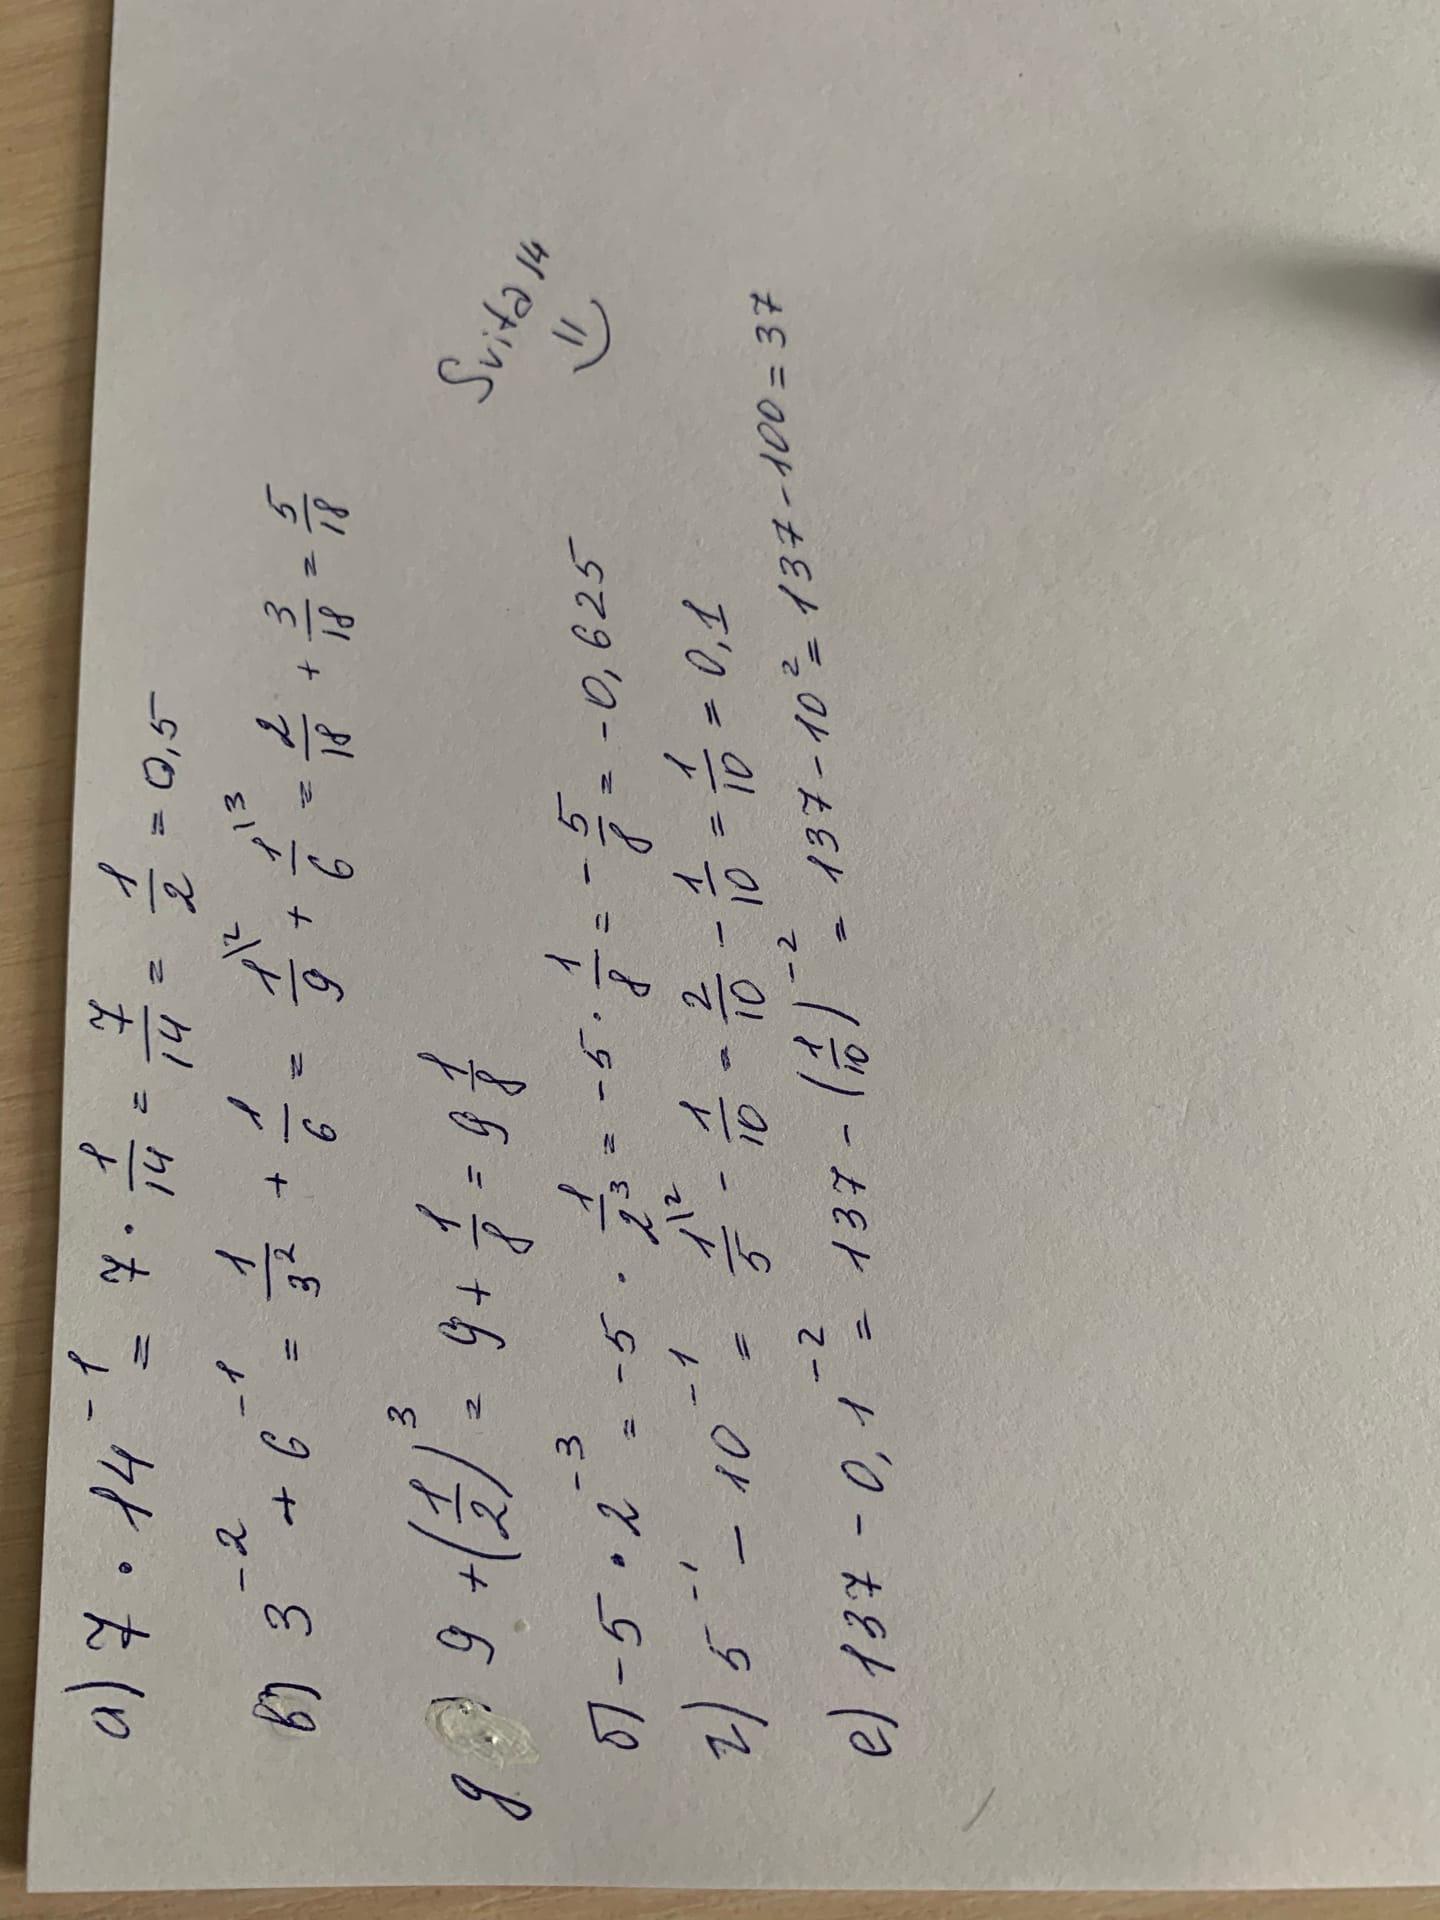 а) 7 · 14⁻¹ = 7 · 1/14 = 7/14 = 1/2 = 0,5
в) 3⁻² + 6⁻¹ = 1/3² + 1/6 = 1\2/9 + 1\3/6 = 2/18 + 3/18 = 5/18
g 9 + (1/2)³ = 9 + 1/8 = 9 1/8
Svita14
б) -5 · 2⁻³ = -5 · 1/2³ = -5 · 1/8 = -5/8 = -0,625
г) 5⁻¹ - 10⁻¹ = 1\2/5 - 1/10 = 2/10 - 1/10 = 1/10 = 0,1
е) 137 - 0,1⁻² = 137 - (1/10)⁻² = 137 - 10² = 137 - 100 = 37